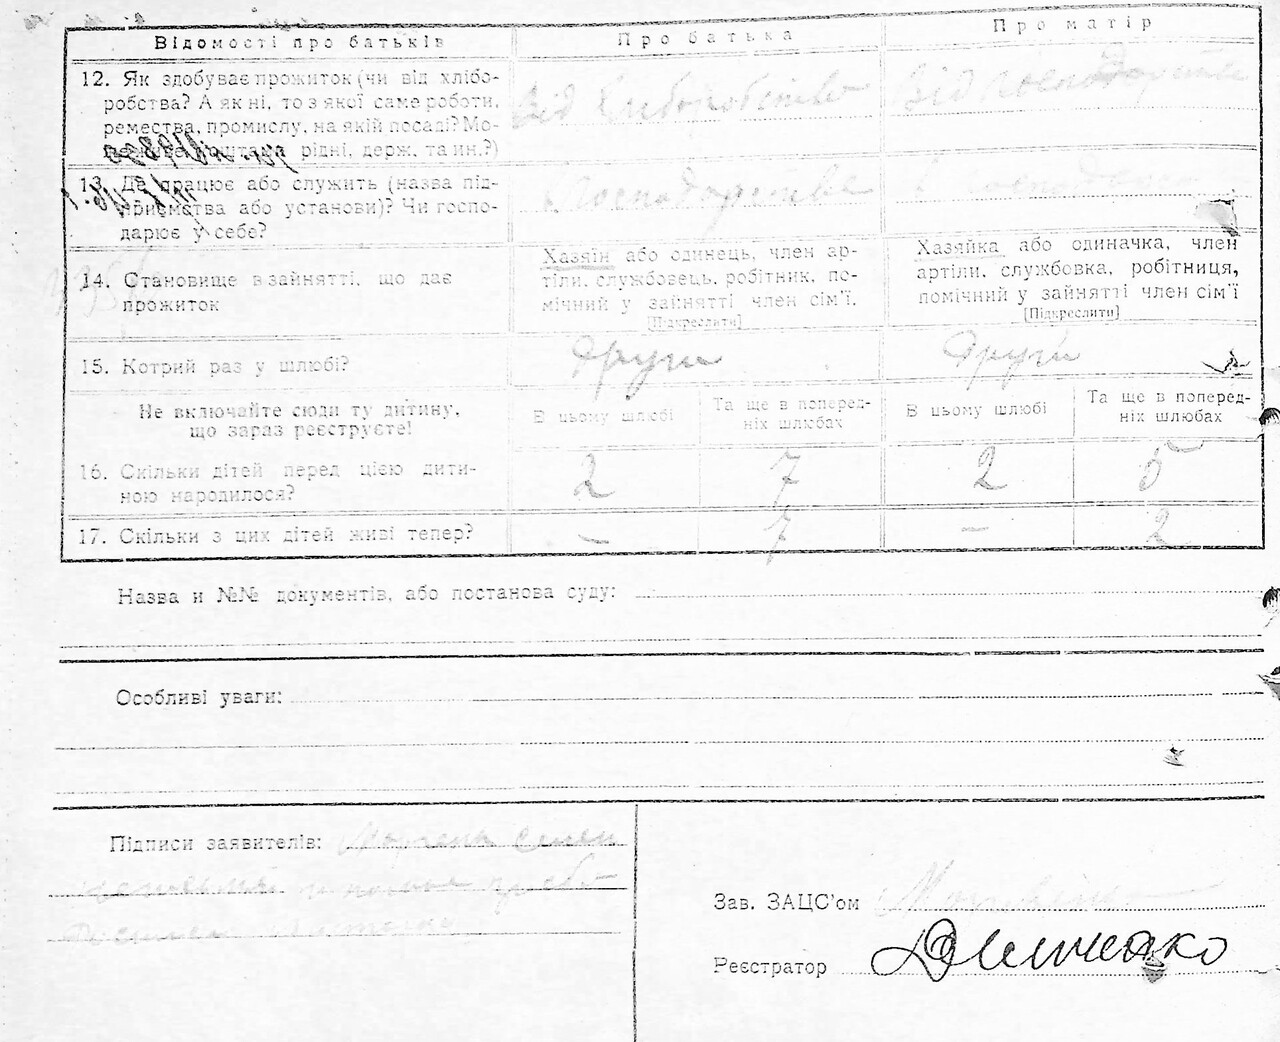 Відомості про батьків
Про батька
Про матір
12. Як здобуває прожиток (чи від хлібо-
робства? А як ні, то з якої саме роботи,
ремества, промислу, на якій посаді? Мо-
рідні, держ. та ин.?)
Від хліборобства
Від господарства
13. Де працює або служить (назва під-
приємства або установи)? Чи госпо-
дарює у себе?
Господарстве
14. Становище в зайнятті, що дає
прожиток
Хазяїн або одинець, член ар-
тіли, службовець, робітник, по-
мічний у зайнятті член сім'ї.
[Підкреслити]
Хазяйка або одиначка, член
артіли, службовка, робітниця,
помічний у зайнятті член сім'ї
[Підкреслити]
15. Котрий раз у шлюбі?
Други
Други
Не включайте сюди ту дитину,
що зараз реєструєте!
В цьому шлюбі
Та ще в поперед-
ніх шлюбах
В цьому шлюбі
Та ще в поперед-
ніх шлюбах
16. Скільки дітей перед цією дити-
ною народилося?
2
7
2
5
17. Скільки з цих дітей живі тепер?
–
7
–
2
Назва и №№ документів, або постанова суду:
Особливі уваги:
Підписи заявителів:
Зав. ЗАЦС'ом
Реєстратор